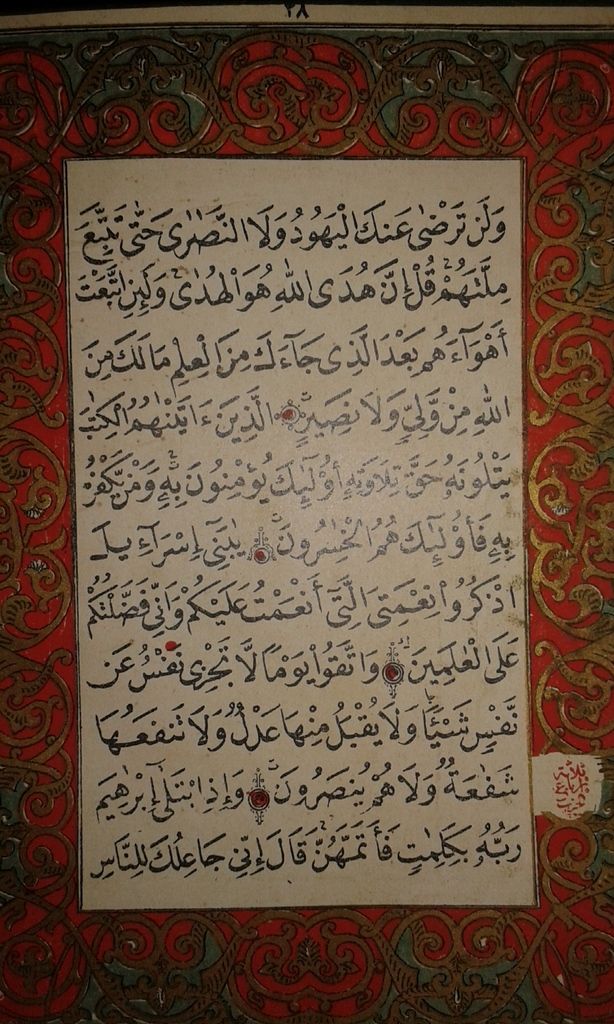 ٢٨
وَلَن تَرْضَىٰ عَنكَ الْيَهُودُ وَلَا النَّصَٰرَىٰ حَتَّىٰ تَتَّبِعَ
مِلَّتَهُمْ قُلْ إِنَّ هُدَى اللَّهِ هُوَ الْهُدَىٰ وَلَئِنِ اتَّبَعْتَ
أَهْوَآءَهُم بَعْدَ الَّذِى جَآءَكَ مِنَ الْعِلْمِ مَا لَكَ مِنَ
اللَّهِ مِنْ وَّلِىٍّ وَلَا نَصِيرٍ الَّذِينَ ءَاتَيْنَٰهُمُ الْكِتَٰبَ
يَتْلُونَهُۥ حَقَّ تِلَاوَتِهِۦٓ أُو۟لَٰٓئِكَ يُؤْمِنُونَ بِهِۦ وَمَنْ يَّكْفُرْ
بِهِۦ فَأُو۟لَٰٓئِكَ هُمُ الْخَٰسِرُونَ يَٰبَنِىٓ إِسْرَآءِيلَ
اذْكُرُوا۟ نِعْمَتِىَ الَّتِىٓ أَنْعَمْتُ عَلَيْكُمْ وَأَنِّى فَضَّلْتُكُمْ
عَلَى الْعَٰلَمِينَ وَاتَّقُوا۟ يَوْمًا لَّا تَجْزِى نَفْسٌ عَن
نَّفْسٍ شَيْـًٔا وَلَا يُقْبَلُ مِنْهَا عَدْلٌ وَلَا تَنفَعُهَا
شَفَٰعَةٌ وَلَا هُمْ يُنصَرُونَ وَإِذِ ابْتَلَىٰٓ إِبْرَٰهِيمَ
رَبُّهُۥ بِكَلِمَٰتٍ فَأَتَمَّهُنَّ قَالَ إِنِّى جَاعِلُكَ لِلنَّاسِ